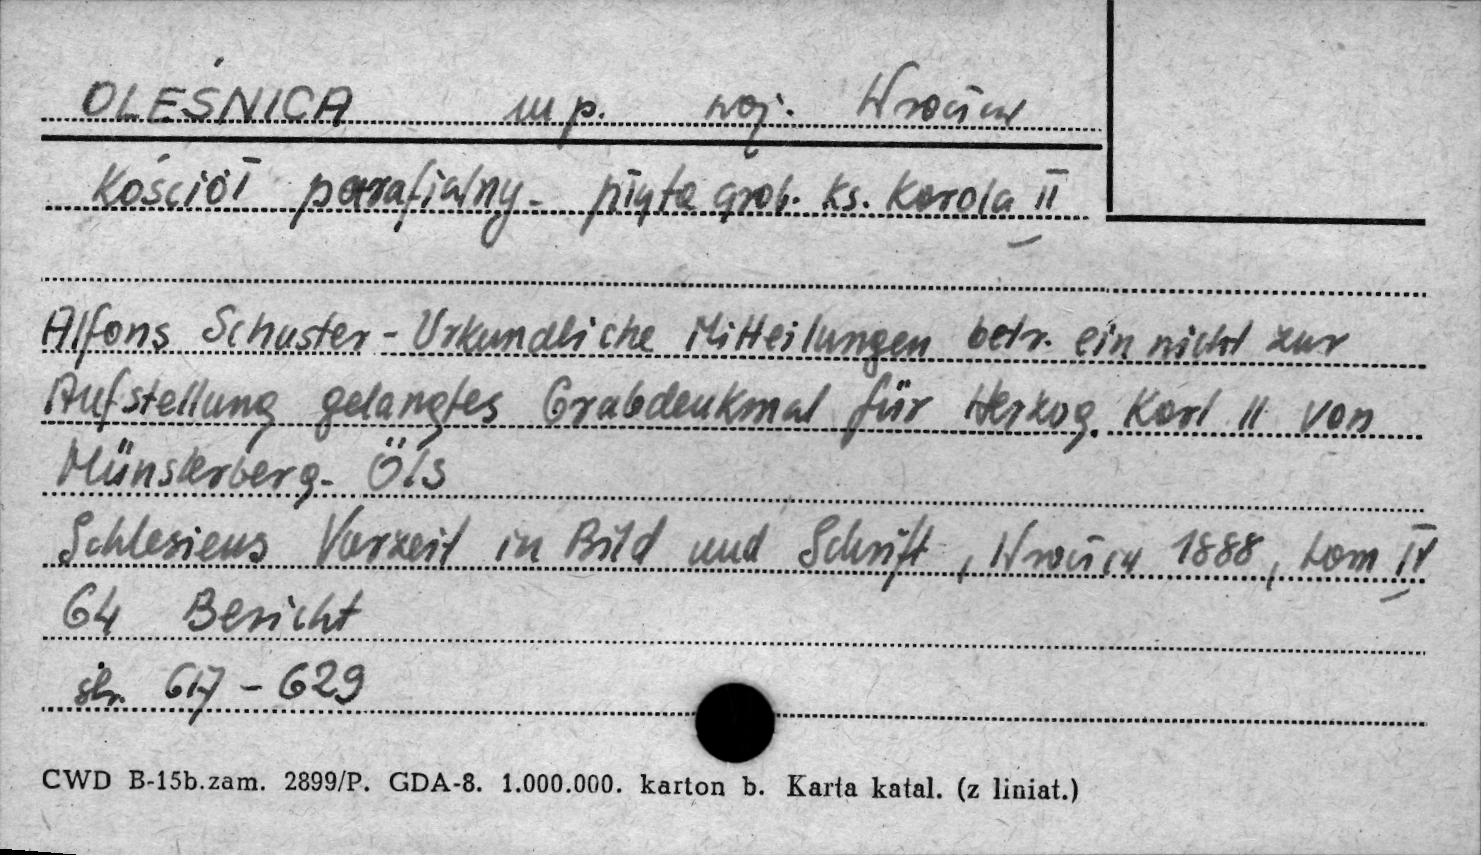 OLEŚNICA m p. woj. Wrocław
Kościół parafialny - płyta grob. ks. Karola II
Alfons Schuster - Urkundliche Mitteilungen betr. ein nicht zur
Aufstellung gelangtes Grabdenkmal für Herzog Karl II von
Münsterberg - Öls
Schlesiens Vorzeit in Bild und Schrift, Wrocław 1888, tom IV
64 Bericht
str. 617 - 629
CWD B-15b.zam. 2899/P. GDA-8. 1.000.000. karton b. Karta katal. (z liniat.)